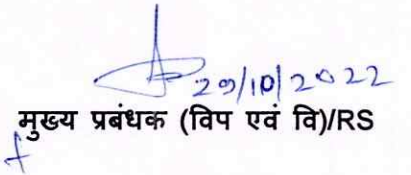 29/10/2022
मुख्य प्रबंधक (विप एवं वि)/RS